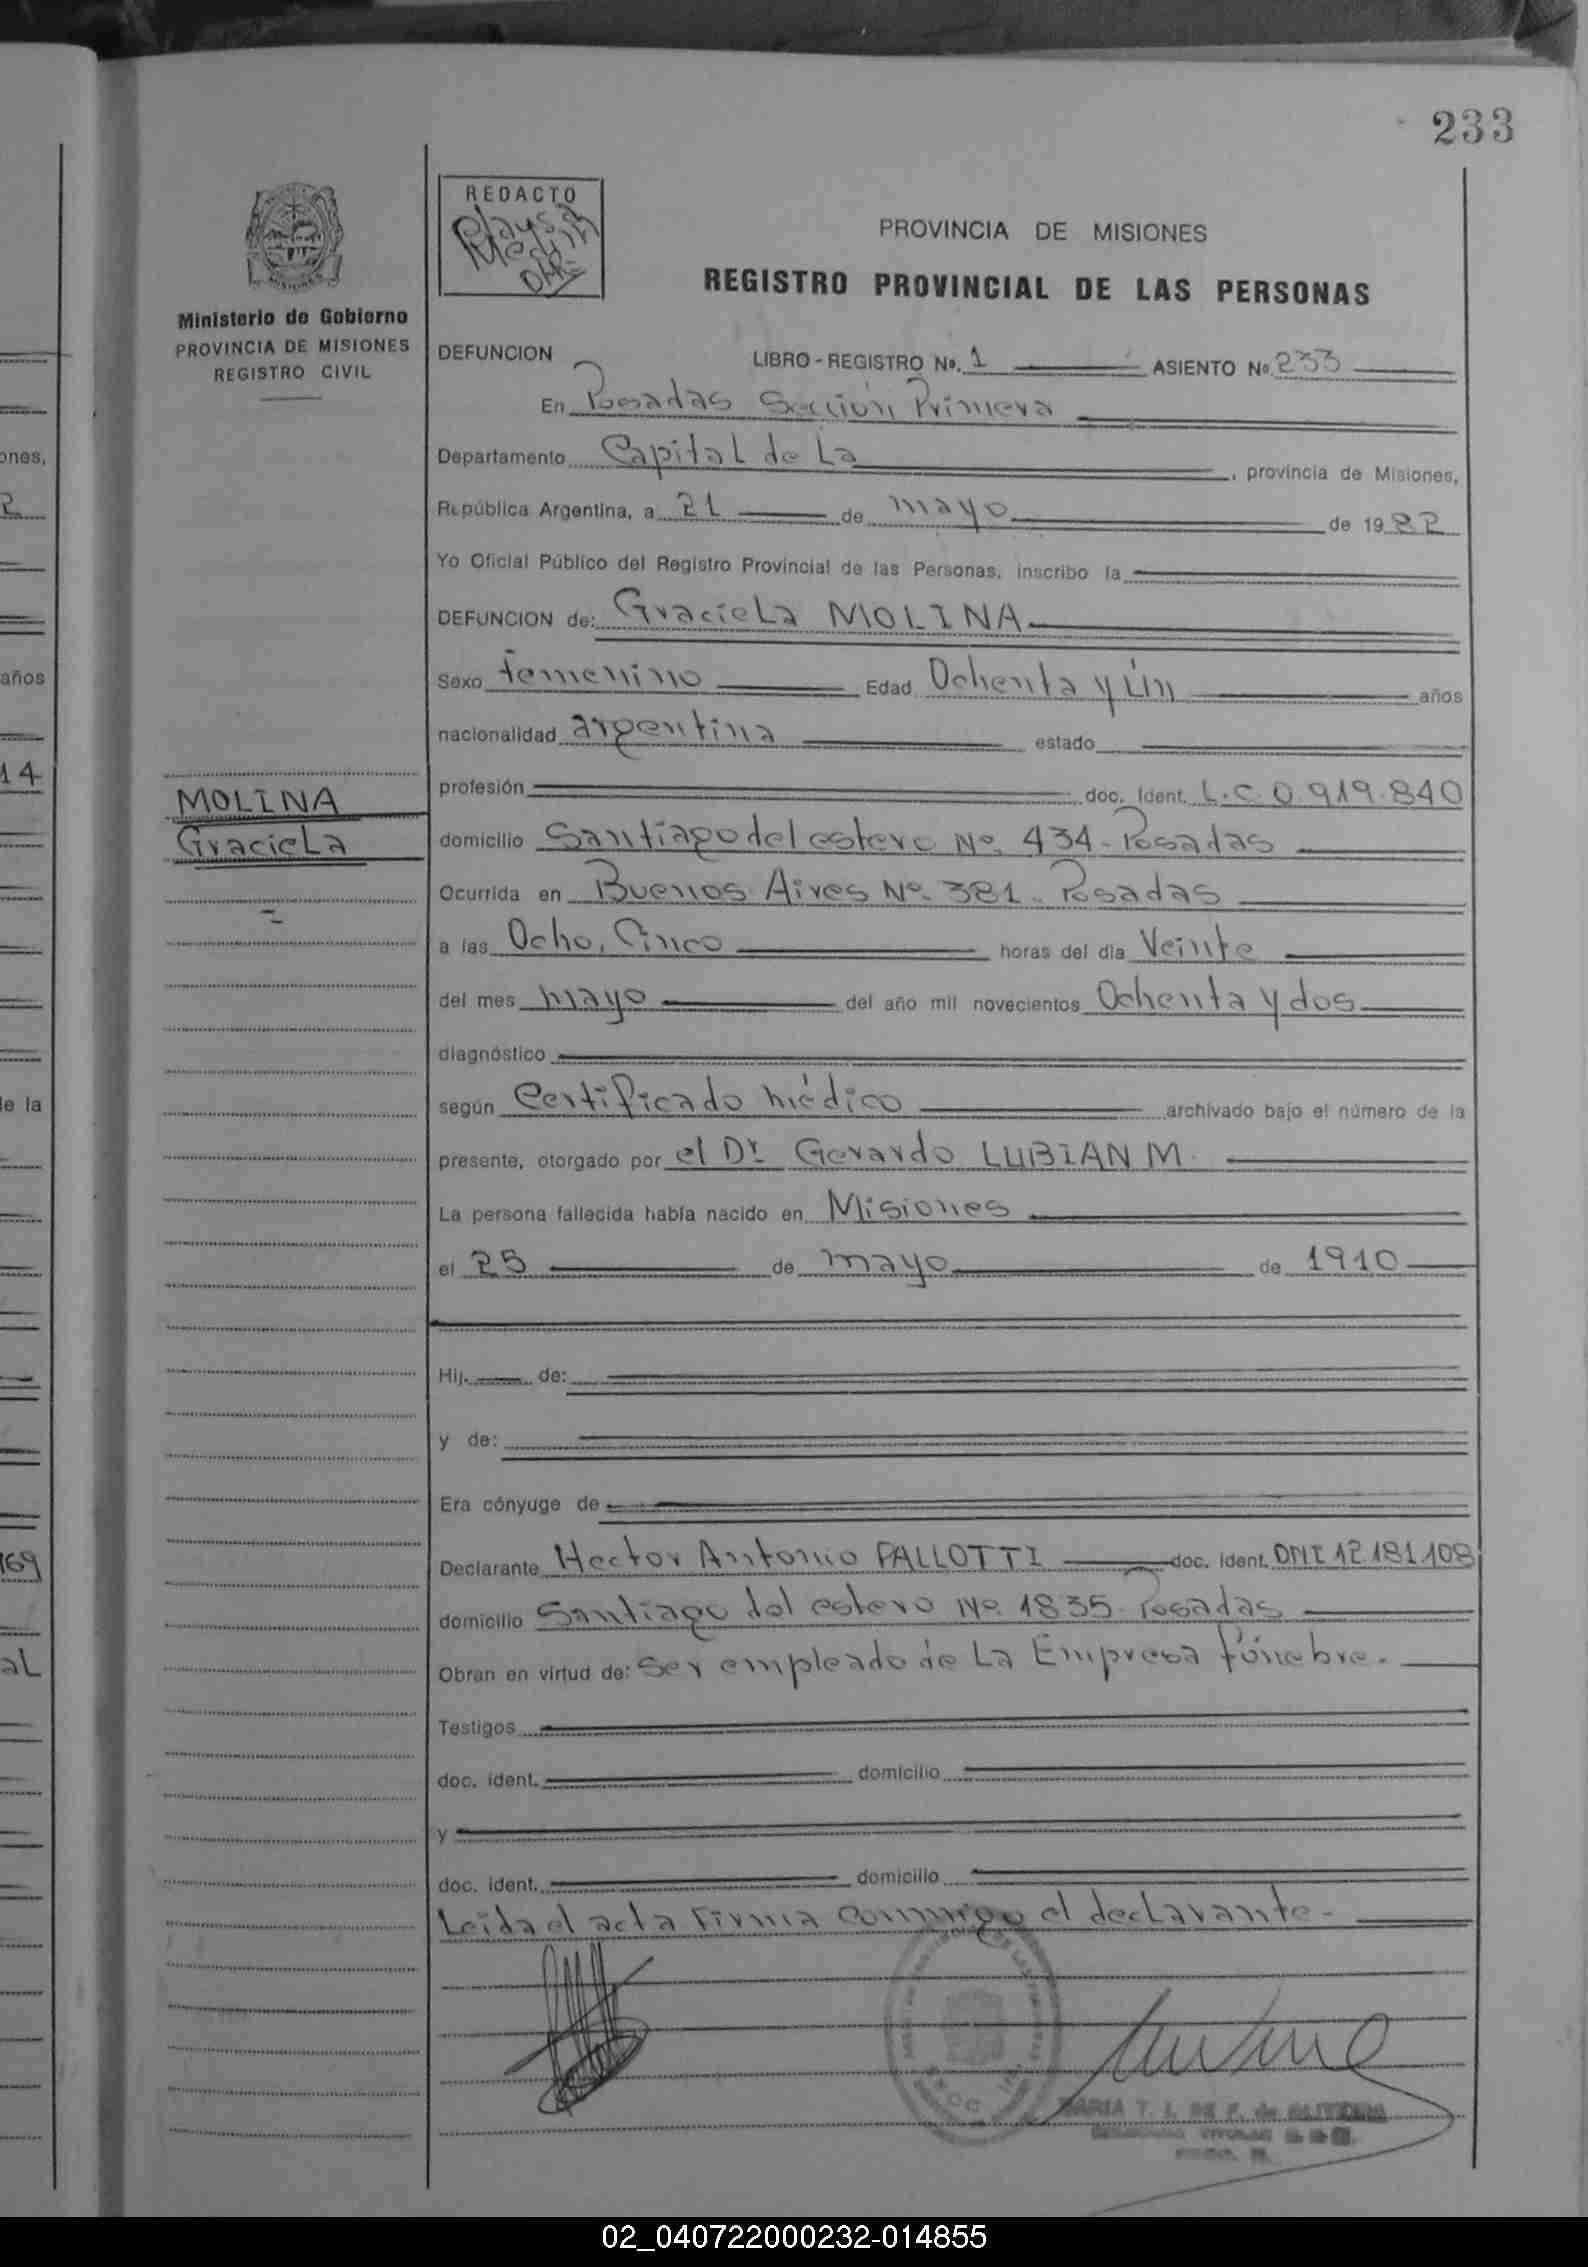 233
REDACTO
PROVINCIA DE MISIONES
REGISTRO PROVINCIAL DE LAS PERSONAS
Ministerio de Gobierno
PROVINCIA DE MISIONES
REGISTRO CIVIL
DEFUNCION LIBRO - REGISTRO No. 1 ASIENTO No. 233
En Posadas Sección Primera
Departamento Capital de La, provincia de Misiones,
República Argentina, a 21 de mayo de 1982
Yo Oficial Público del Registro Provincial de las Personas, inscribo la
DEFUNCION de: Graciela MOLINA
Sexo femenino Edad Ochenta y Un años
nacionalidad argentina estado
profesión doc. ident. L.C 0.919.840
MOLINA
Graciela
domicilio Santiago del estero Nº 434 - Posadas
Ocurrida en Buenos Aires Nº 381 - Posadas
a las Ocho, Cinco horas del día Veinte
del mes mayo del año mil novecientos Ochenta y dos
diagnóstico
según Certificado médico archivado bajo el número de la
presente, otorgado por el Dr Gerardo LUBIAN M.
La persona fallecida había nacido en Misiones
el 25 de mayo de 1910
Hij. de:
y de:
Era cónyuge de
Declarante Hector Antonio PALLOTTI doc. ident. DNI 12.181.108
domicilio Santiago del estero Nº 1835 - Posadas
Obran en virtud de: Ser empleado de La Empresa fúnebre.
Testigos
doc. ident. domicilio
y
doc. ident. domicilio
Leida el acta Firma conmigo el declarante -
MARIA T. I. DE F. de OLIVEIRA
ones,
2
años
14
de la
169
aL
02_040722000232-014855